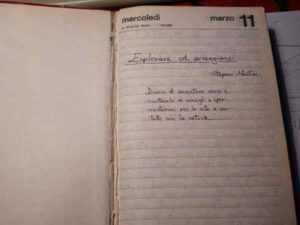 mercoledì
marzo 11
Esplorare ed arrangiarsi
Stefano Martini
Diario di avventure vere e
manuale di consigli e speri
mentazioni per la vita a con
tatto con la natura.........